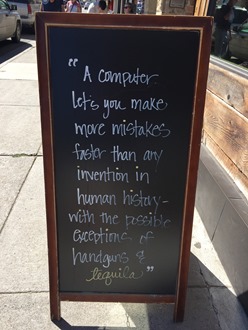 “A computer
let's you make
more mistakes
faster than any
invention in
human history-
with the possible
exceptions of
handguns &
tequila”